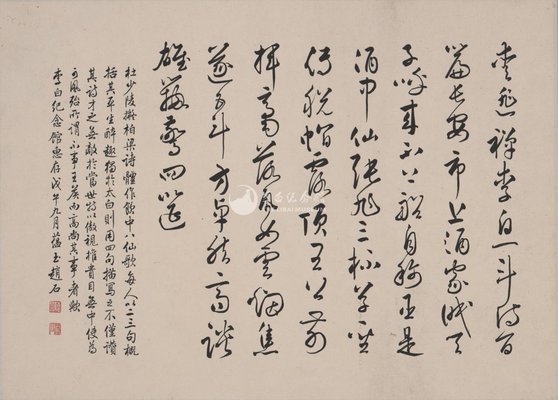 愛逃禪李白一斗詩百
篇長安市上酒家眠天
子呼來不上船自稱臣是
酒中仙張旭三杯草聖
傳脫帽露頂王公前
揮毫落紙如雲煙焦
遂五斗方卓然高談
雄辯驚四筵
杜少陵擬柏梁詩體作飲中八仙歌每人以二三句概
括其平生醉趣獨於太白則用四句描寫之不僅讚
其詩才之無敵於當世特以傲視權貴目無中使為
可風殆所謂不事王侯而高尚其事者歟
李白紀念館惠存戊午九月蘊玉趙石
LIBAI MUSEUM